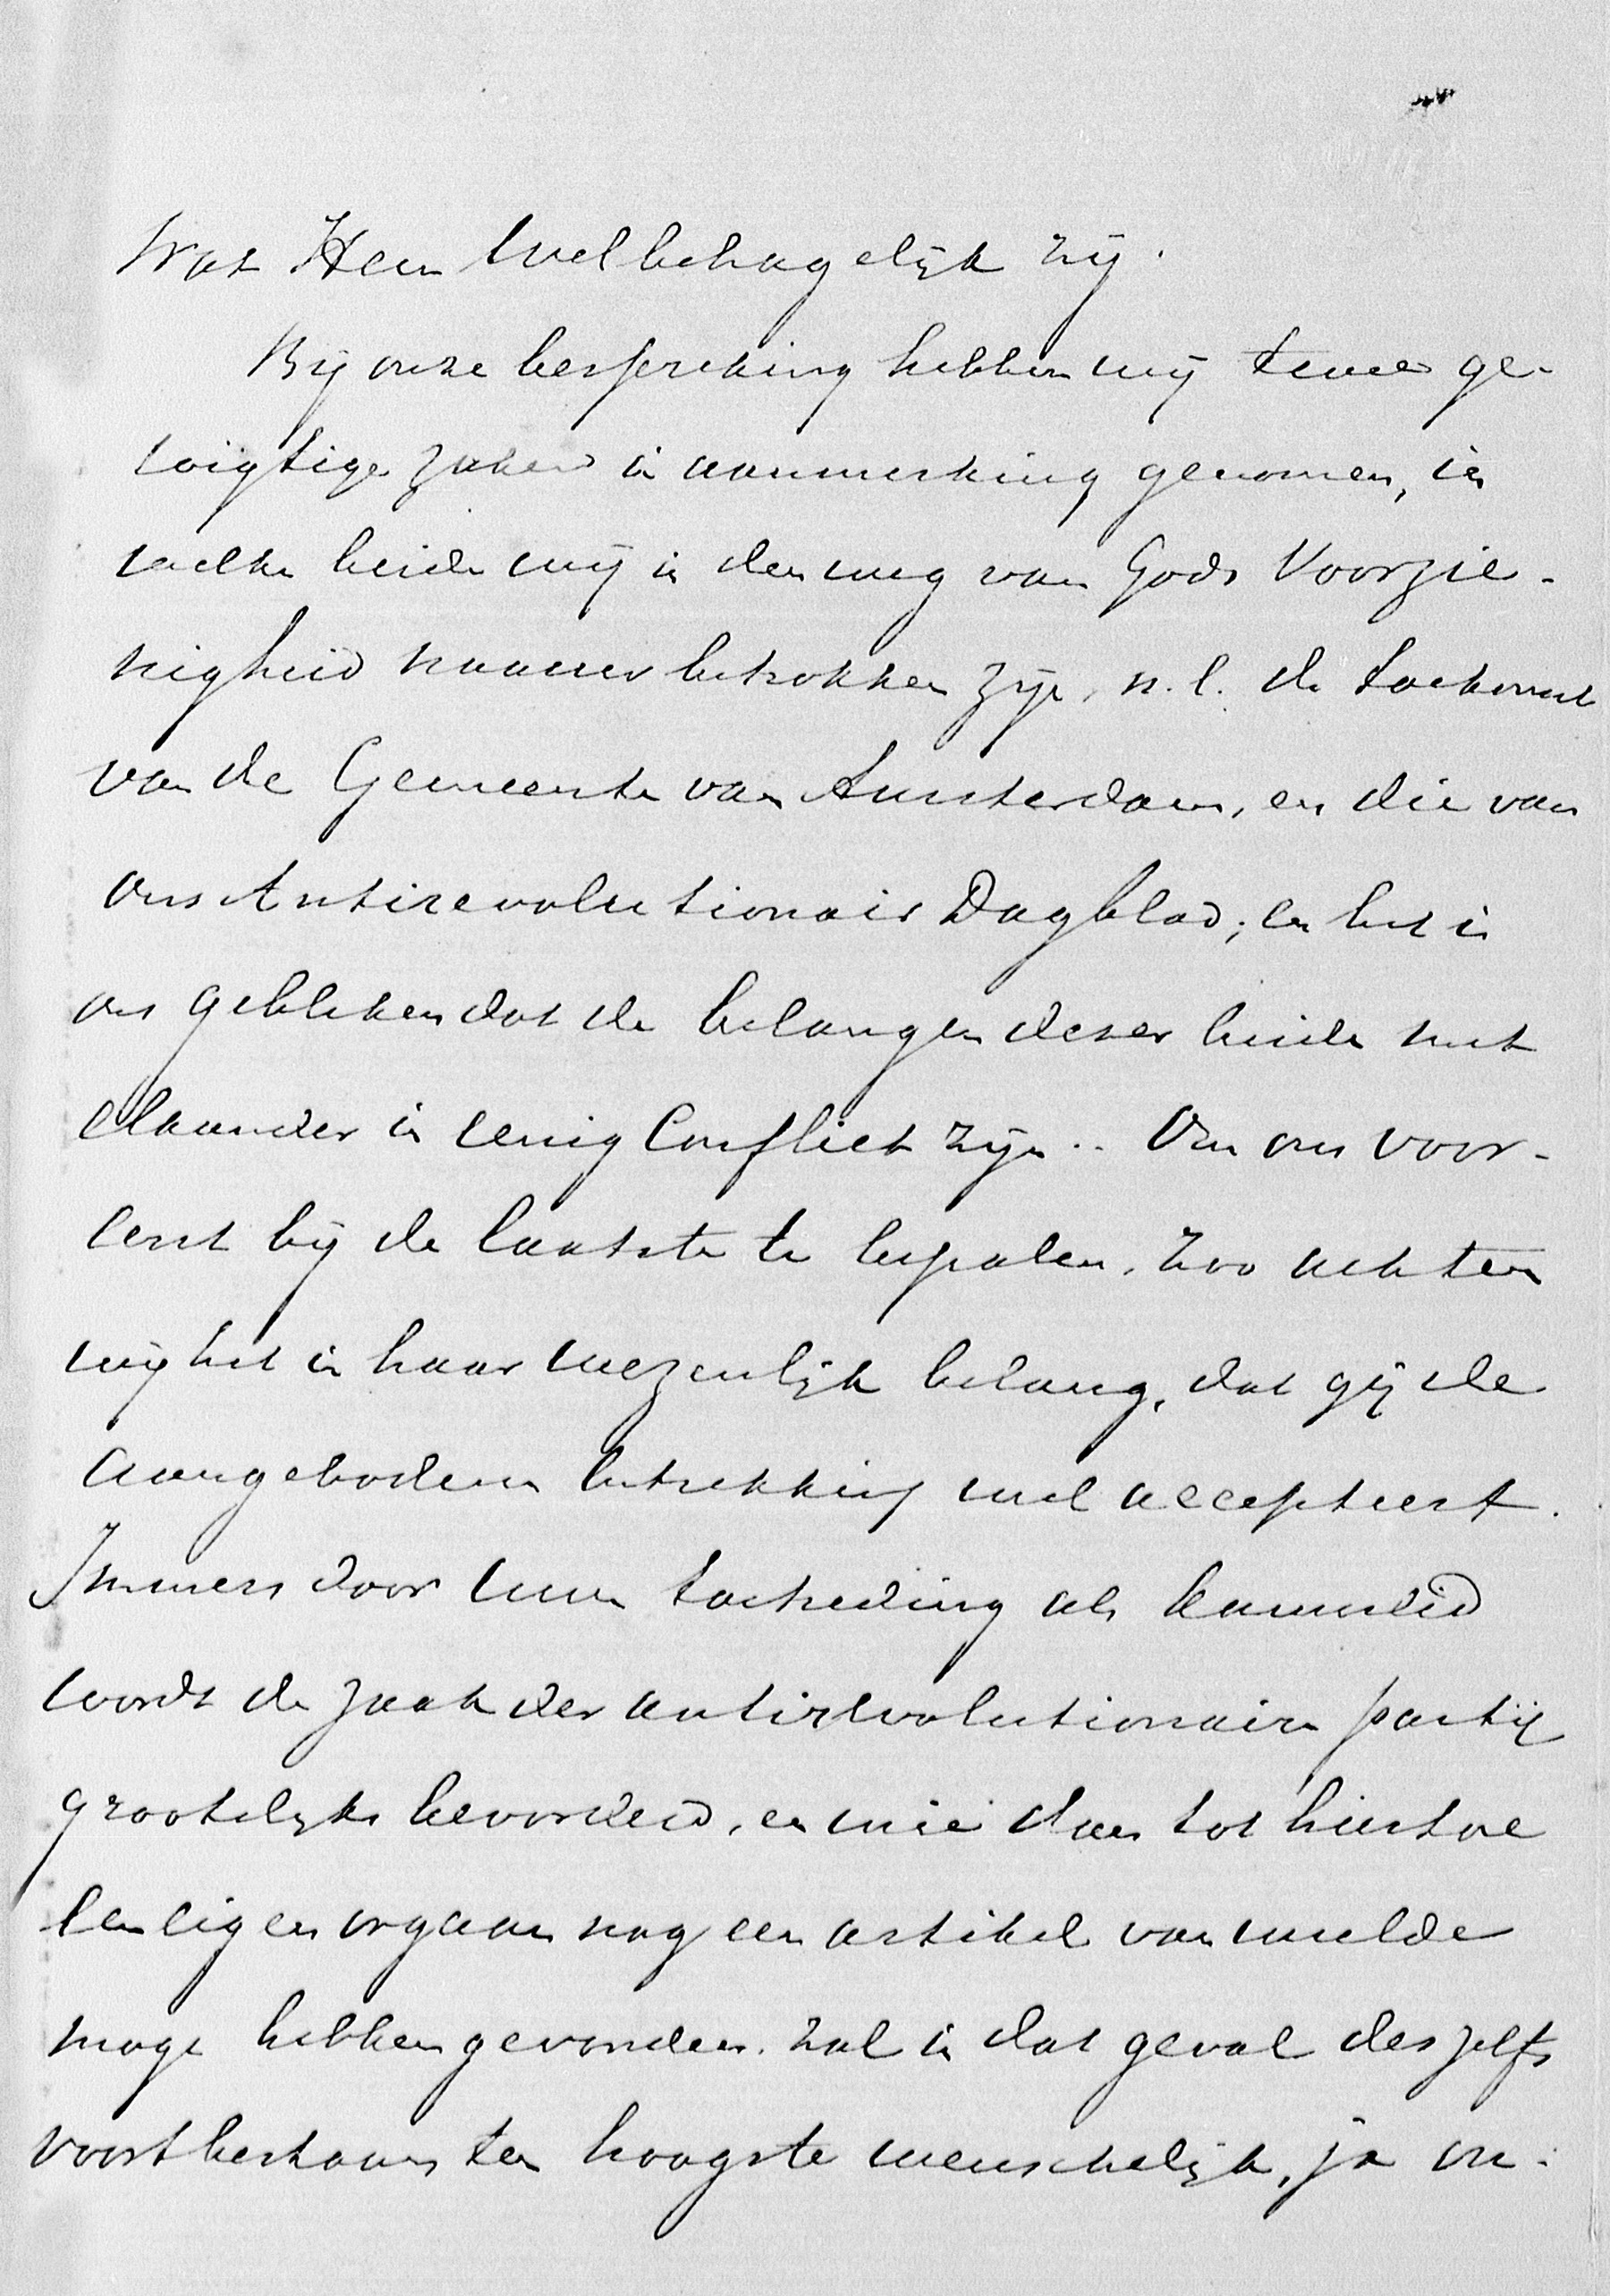 Wat Hem welbehagelijk zij.
Bij onze bespreking hebben wij twee ge-
wigtige zaken in aanmerking genomen, in
welke beide wij in den weg van Gods Voorzie-
nigheid naauw betrokken zijn, n.l. de toekomst
van de Gemeente van Amsterdam, en die van
ons Antirevolutionair Dagblad; en het is
ons gebleken dat de belangen dezer beide met
elkander in eenig Conflict zijn. Om ons voor-
eerst bij de laatste te bepalen, zoo achten
wij het in haar wezenlijk belang, dat gij de
aangeboden betrekking wel accepteert.
Immers door uwe toetreding als kamerlid
wordt de zaak der antirevolutionaire partij
grootelijks bevorderd, en wie dan tot hiertoe
een eigen orgaan nog een artikel van weelde
moge hebben gevonden, zal in dat geval deszelfs
voortbestaan ten hoogste wenschelijk, ja on-